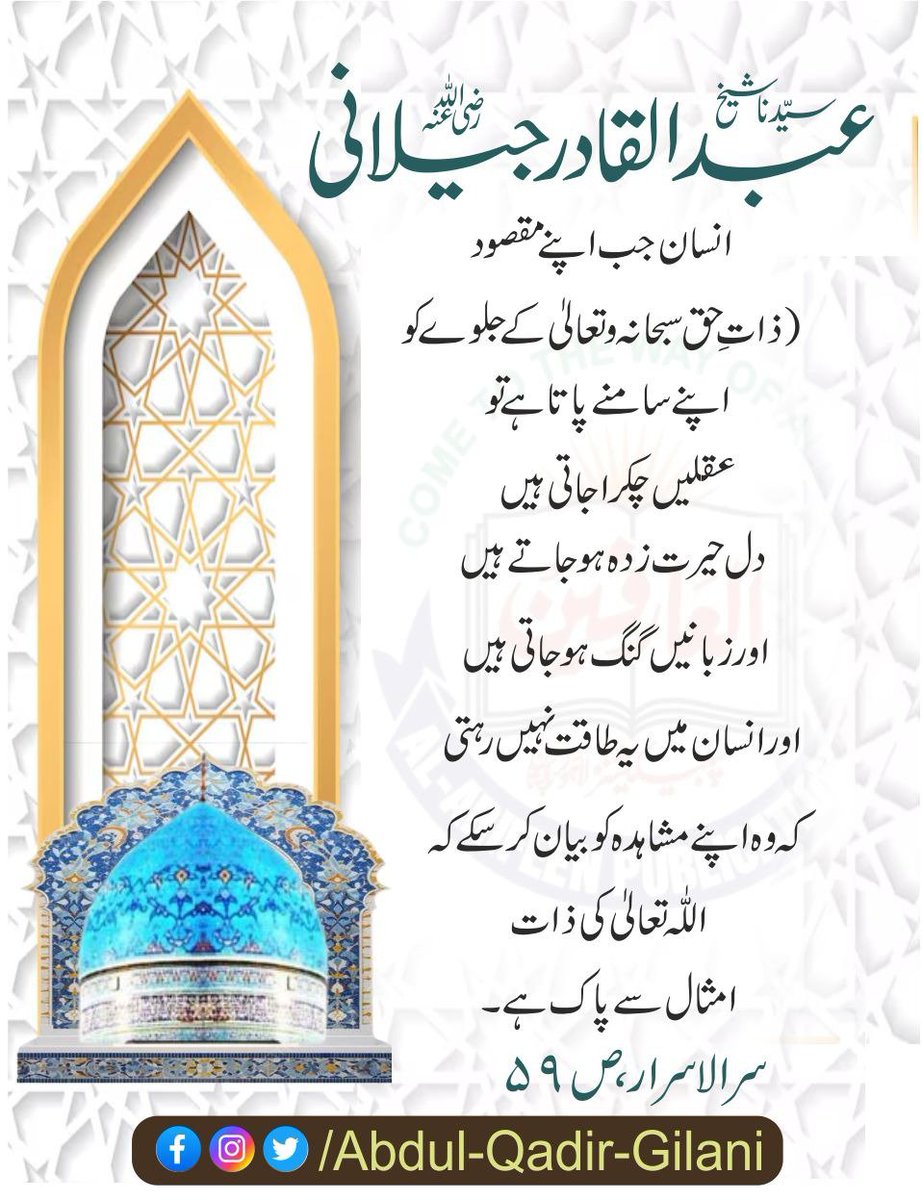 سیّدنا شیخ
عبدالقادر جیلانی رضی اللہ عنہ
انسان جب اپنے مقصود
(ذاتِ حق سبحانہ وتعالیٰ کے جلوے کو
اپنے سامنے پاتا ہے تو
عقلیں چکرا جاتی ہیں
دل حیرت زدہ ہوجاتے ہیں
اور زبانیں گنگ ہوجاتی ہیں
اور انسان میں یہ طاقت نہیں رہتی
کہ وہ اپنے مشاہدہ کو بیان کرسکے کہ
اللہ تعالیٰ کی ذات
امثال سے پاک ہے۔
سرالاسرار،ص ۵۹
/Abdul-Qadir-Gilani
COME TO THE WAY OF
العارفین